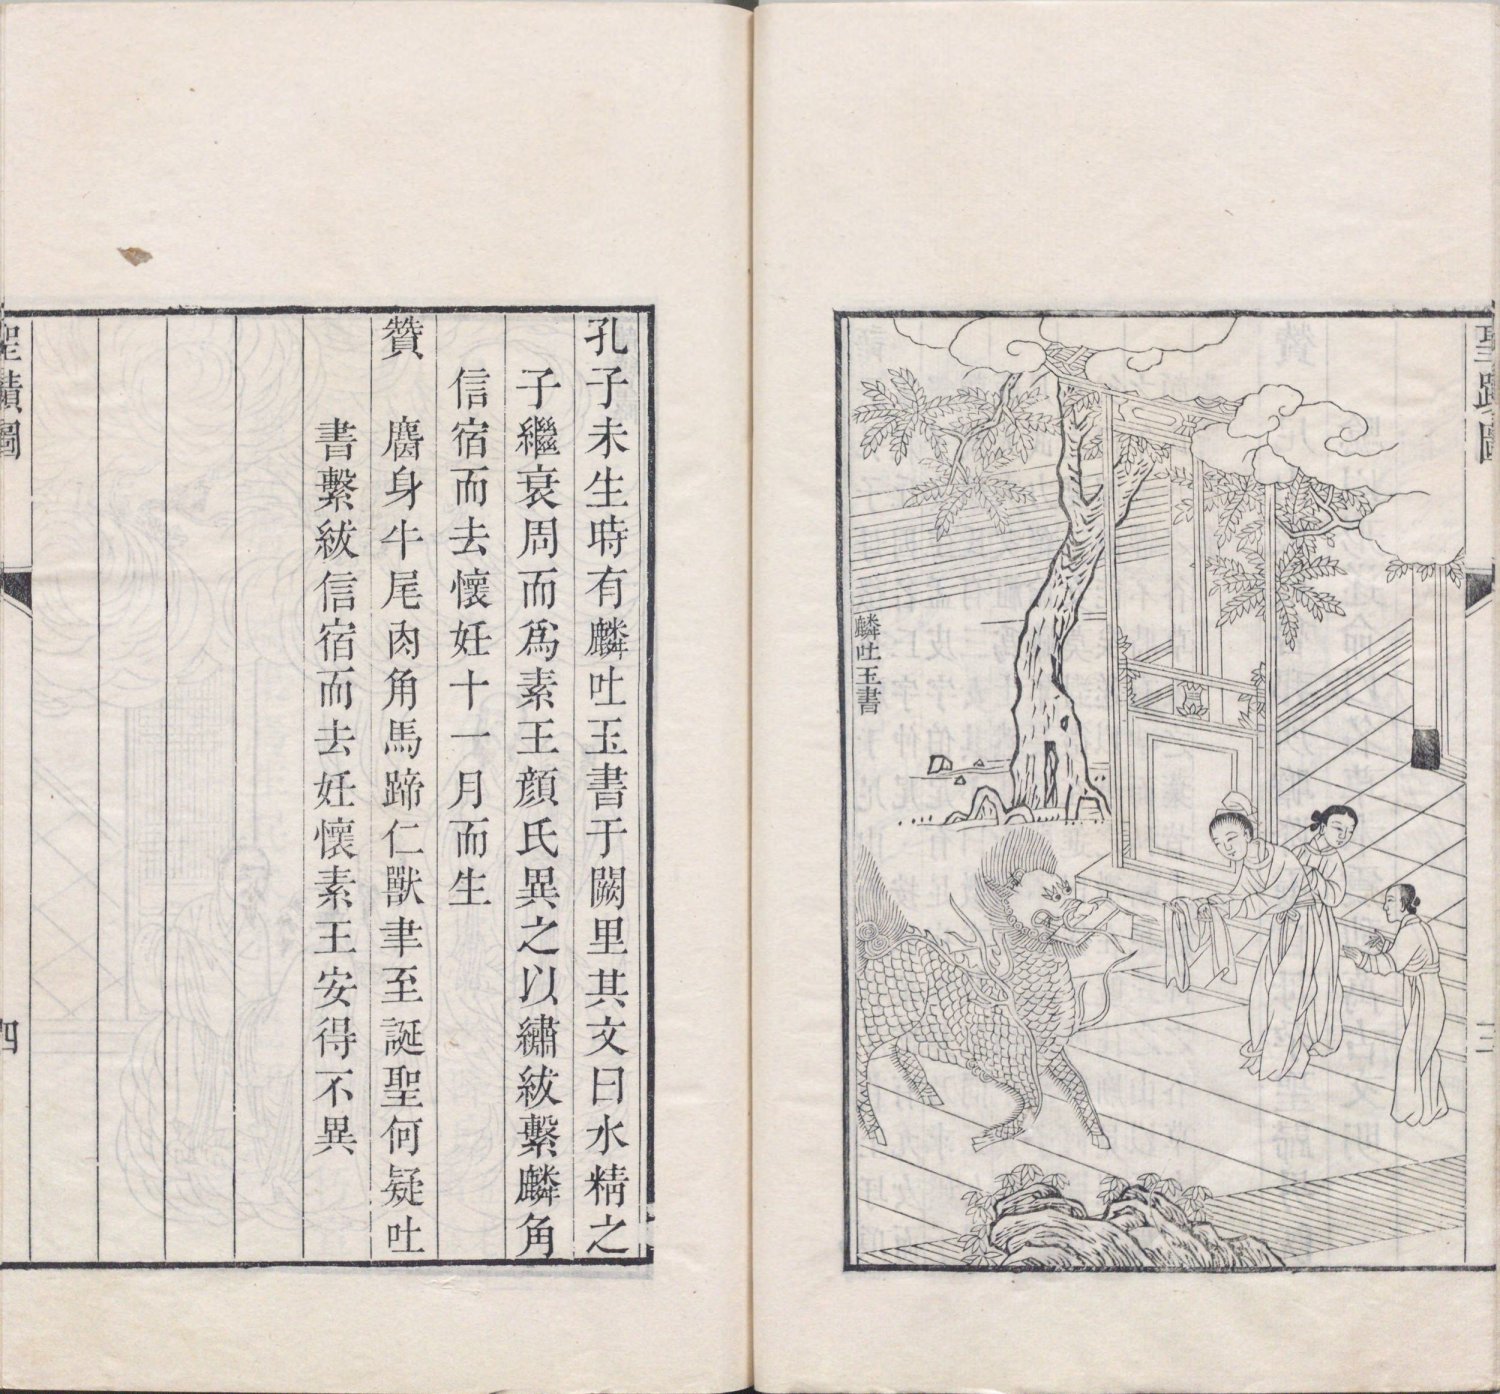 聖蹟圖
三
麟吐玉書
孔子未生時有麟吐玉書于闕里其文曰水精之
子繼衰周而爲素王顏氏異之以繡紱繫麟角
信宿而去懷妊十一月而生
贊
麕身牛尾肉角馬蹄仁獸聿至誕聖何疑吐
書繫紱信宿而去妊懷素王安得不異
聖蹟圖
四